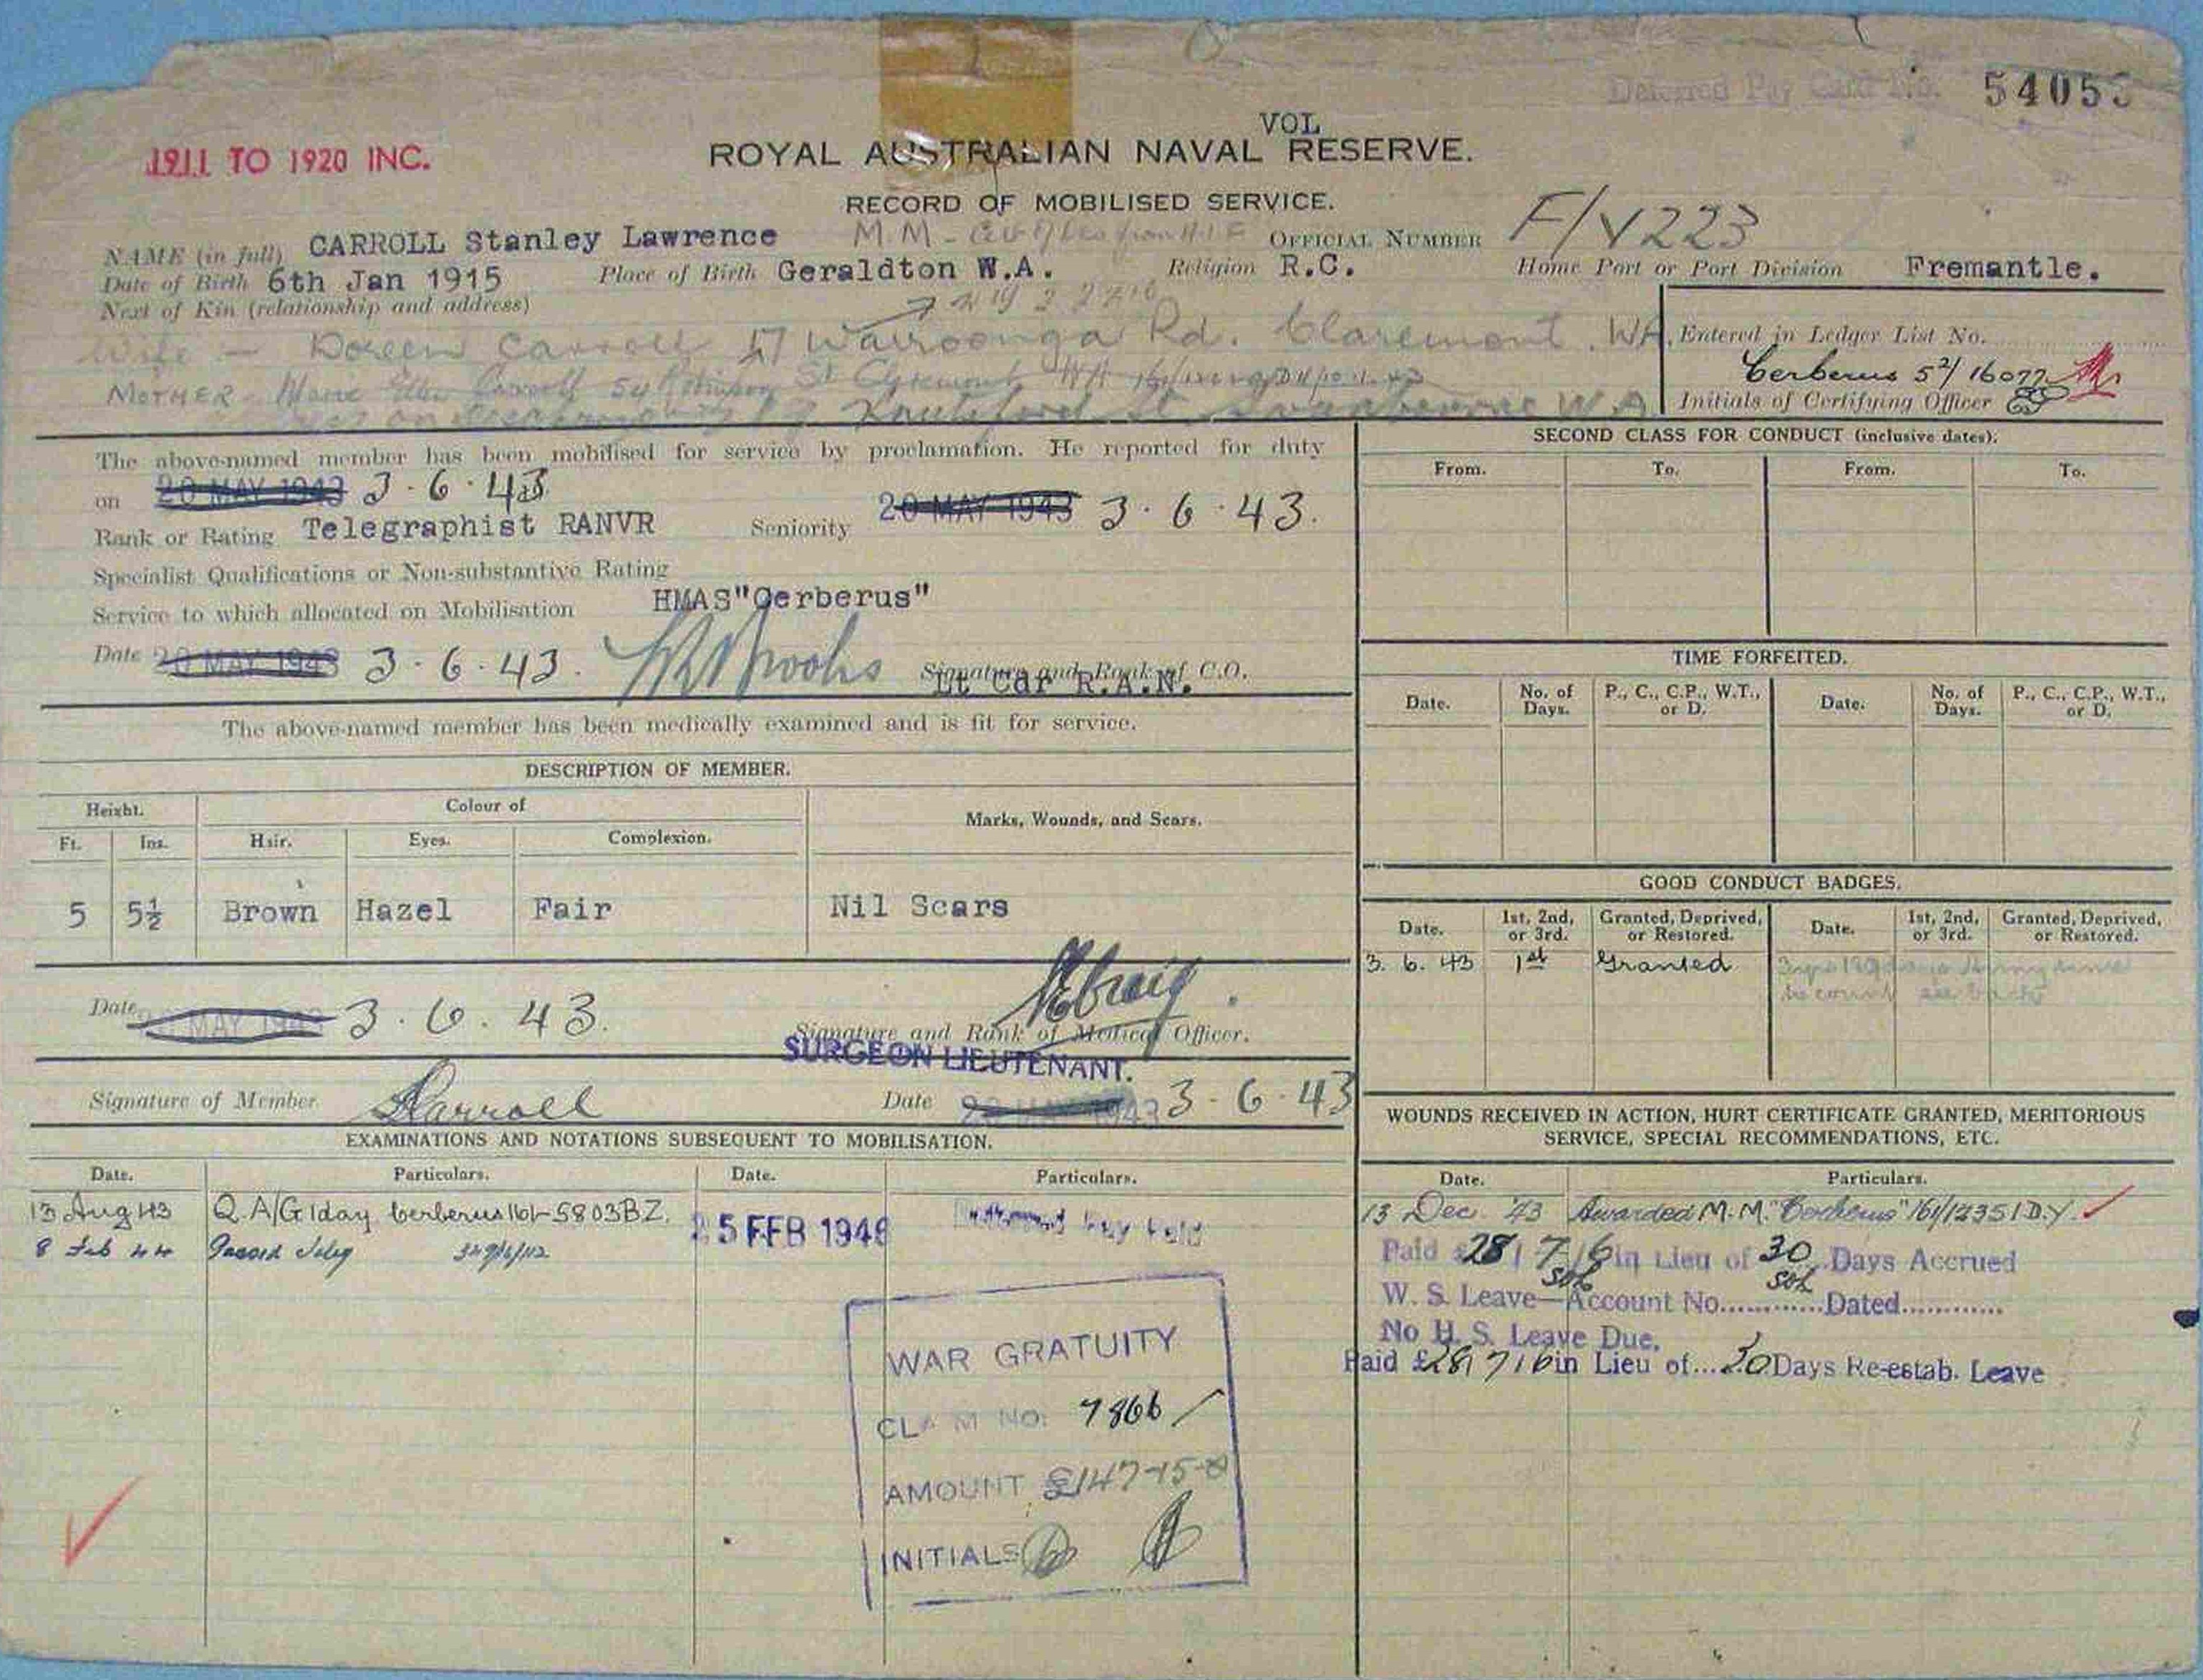 Deferred Pay Card No. 5405
1911 TO 1920 INC.
VOL
ROYAL AUSTRALIAN NAVAL RESERVE.
RECORD OF MOBILISED SERVICE.
NAME (in full) CARROLL Stanley Lawrence M.M - OFFICIAL NUMBER F/V223
Date of Birth 6th Jan 1915 Place of Birth Geraldton W.A. Religion R.C. Home Port or Port Division Fremantle.
Next of Kin (relationship and address)
Wife - Doreen Carroll 17 Warroonga Rd. Claremont. WA.
Entered in Ledger List No.
MOTHER Marie Carroll 54 Robinson St Claremont WA
Cerberus 5²/16077
St. Swanbourne W.A.
Initials of Certifying Officer
The above-named member has been mobilised for service by proclamation. He reported for duty
on 20 MAY 1943 3.6.43
Rank or Rating Telegraphist RANVR Seniority 20 MAY 1943 3.6.43.
Specialist Qualifications or Non-substantive Rating
Service to which allocated on Mobilisation HMAS"Cerberus"
Date 20 MAY 1943 3.6.43. Signature and Rank of C.O.
Lt Cdr R.A.N.
The above-named member has been medically examined and is fit for service.
DESCRIPTION OF MEMBER.
Height. Colour of Marks, Wounds, and Scars.
Ft. Ins. Hair. Eyes. Complexion.
5 5½ Brown Hazel Fair Nil Scars
Date MAY 3.6.43.
Signature and Rank of Medical Officer.
SURGEON LIEUTENANT.
Signature of Member SCarroll Date 20 MAY 1943 3-6-43
EXAMINATIONS AND NOTATIONS SUBSEQUENT TO MOBILISATION.
Date. Particulars. Date. Particulars.
13 Aug 43 Q.A/G 1day Cerberus 161-5803BZ.
25 FEB 1946
8 Feb 44 Passed
WAR GRATUITY
CLAIM NO: 7866
AMOUNT £147-15-0
INITIALS
SECOND CLASS FOR CONDUCT (inclusive dates).
From. To. From. To.
TIME FORFEITED.
Date. No. of Days. P., C., C.P., W.T., or D. Date. No. of Days. P., C., C.P., W.T., or D.
GOOD CONDUCT BADGES.
Date. 1st, 2nd, or 3rd. Granted, Deprived, or Restored. Date. 1st, 2nd, or 3rd. Granted, Deprived, or Restored.
3. 6. 43 1st Granted
WOUNDS RECEIVED IN ACTION, HURT CERTIFICATE GRANTED, MERITORIOUS
SERVICE, SPECIAL RECOMMENDATIONS, ETC.
Date. Particulars.
13 Dec. '43 Awarded M.M. "Cerberus" 161/12351D.Y.
Paid £28/7/6 in Lieu of 30 Days Accrued
W. S. Leave—Account No............Dated............
No H. S. Leave Due.
Paid £28/7/6 in Lieu of...30 Days Re-estab. Leave